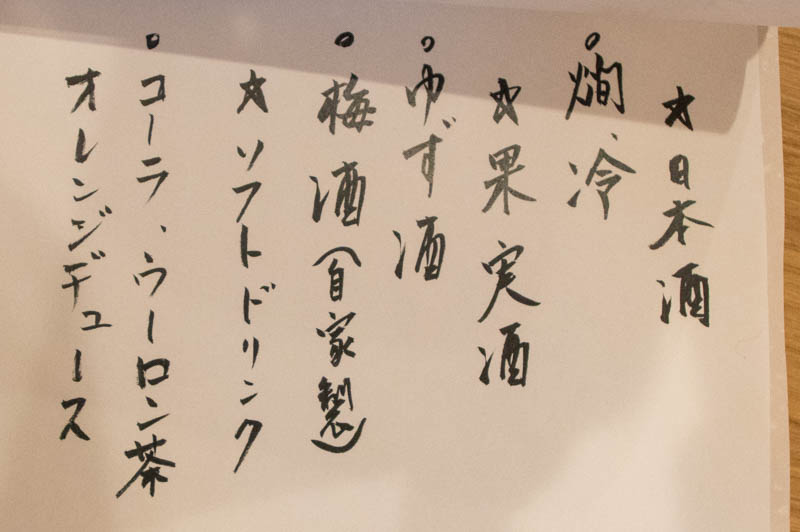 ★日本酒
○燗、冷
★果実酒
○ゆず酒
○梅酒（自家製）
★ソフトドリンク
○コーラ、ウーロン茶
オレンジデュース